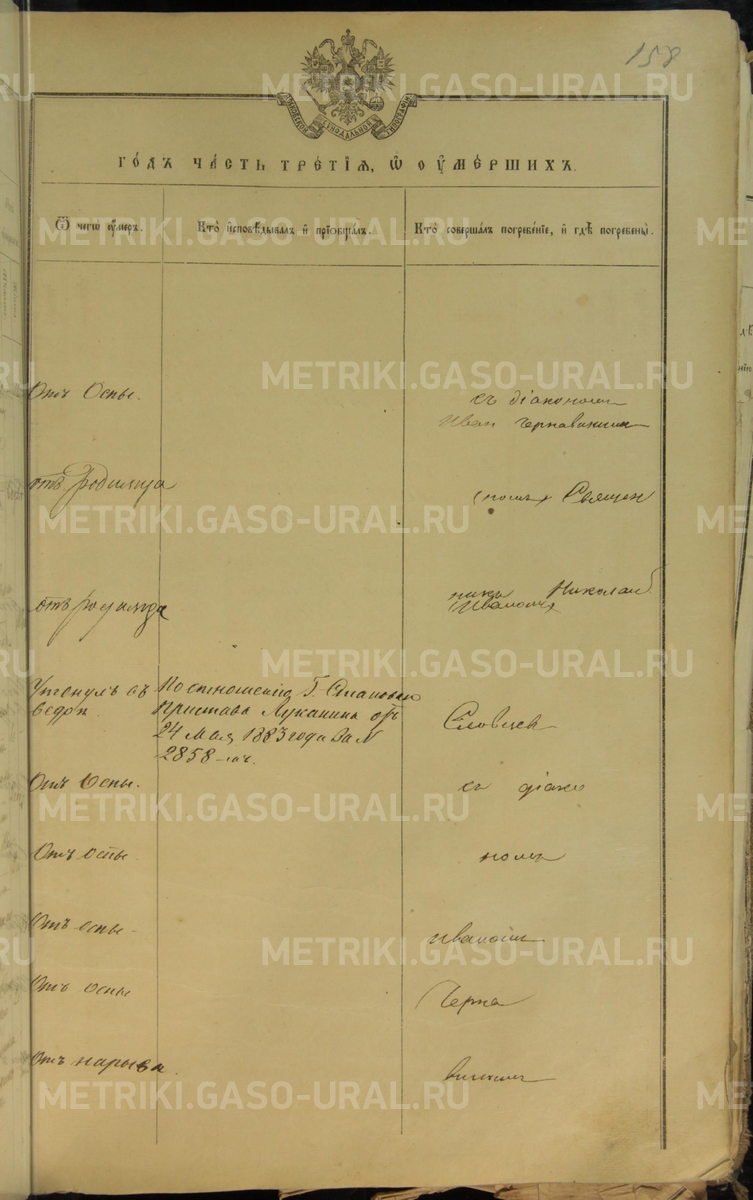 158
МОСКОВСКОЙ СѴНОДАЛЬНОЙ ТИПОГРАФІИ
ГО́ДЪ ЧА́СТЬ ТРЕ́ТІЯ, Ѿ ОУ҆МЕ́РШИХЪ.
Ѿ чегѡ̀ оу҆́меръ.
Кто̀ и҆сповѣ́дывалъ и҆ прїѡбща́лъ.
Кто̀ соверша́лъ погребе́нїе, и҆ гдѣ̀ погребены̀.
Отъ Оспы.
съ діакономъ
Иван Чернавинымъ
отъ родимца
Священ
отъ родимца
никъ Николай
Ивановъ
Утенулъ въ
ведрѣ
По отношенію Г. Становаго
Пристава Луканина отъ
24 Мая 1883 года за N
2858-мъ.
Словцев
Отъ Оспы.
съ діако
Отъ оспы
номъ
Отъ оспы
Иваномъ
Отъ оспы
Черна
Отъ нарыва.
винымъ
METRIKI.GASO-URAL.RU